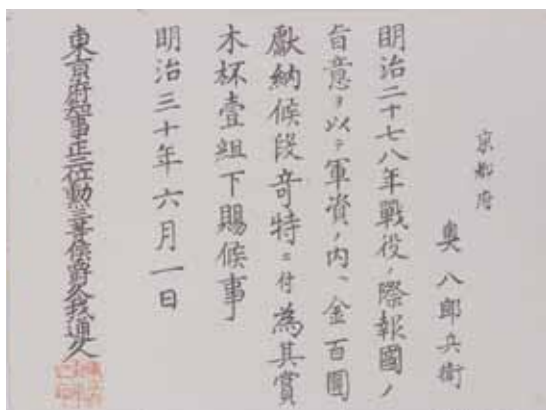 京都府
奥八郎兵衛
明治二十七八年戰役ノ際報國ノ
旨意ヲ以テ軍資ノ内ヘ金百圓
獻納候段奇特ニ付為其賞
木杯壹組下賜候事
明治三十年六月一日
東京府知事正三位勲三等侯爵久我通久